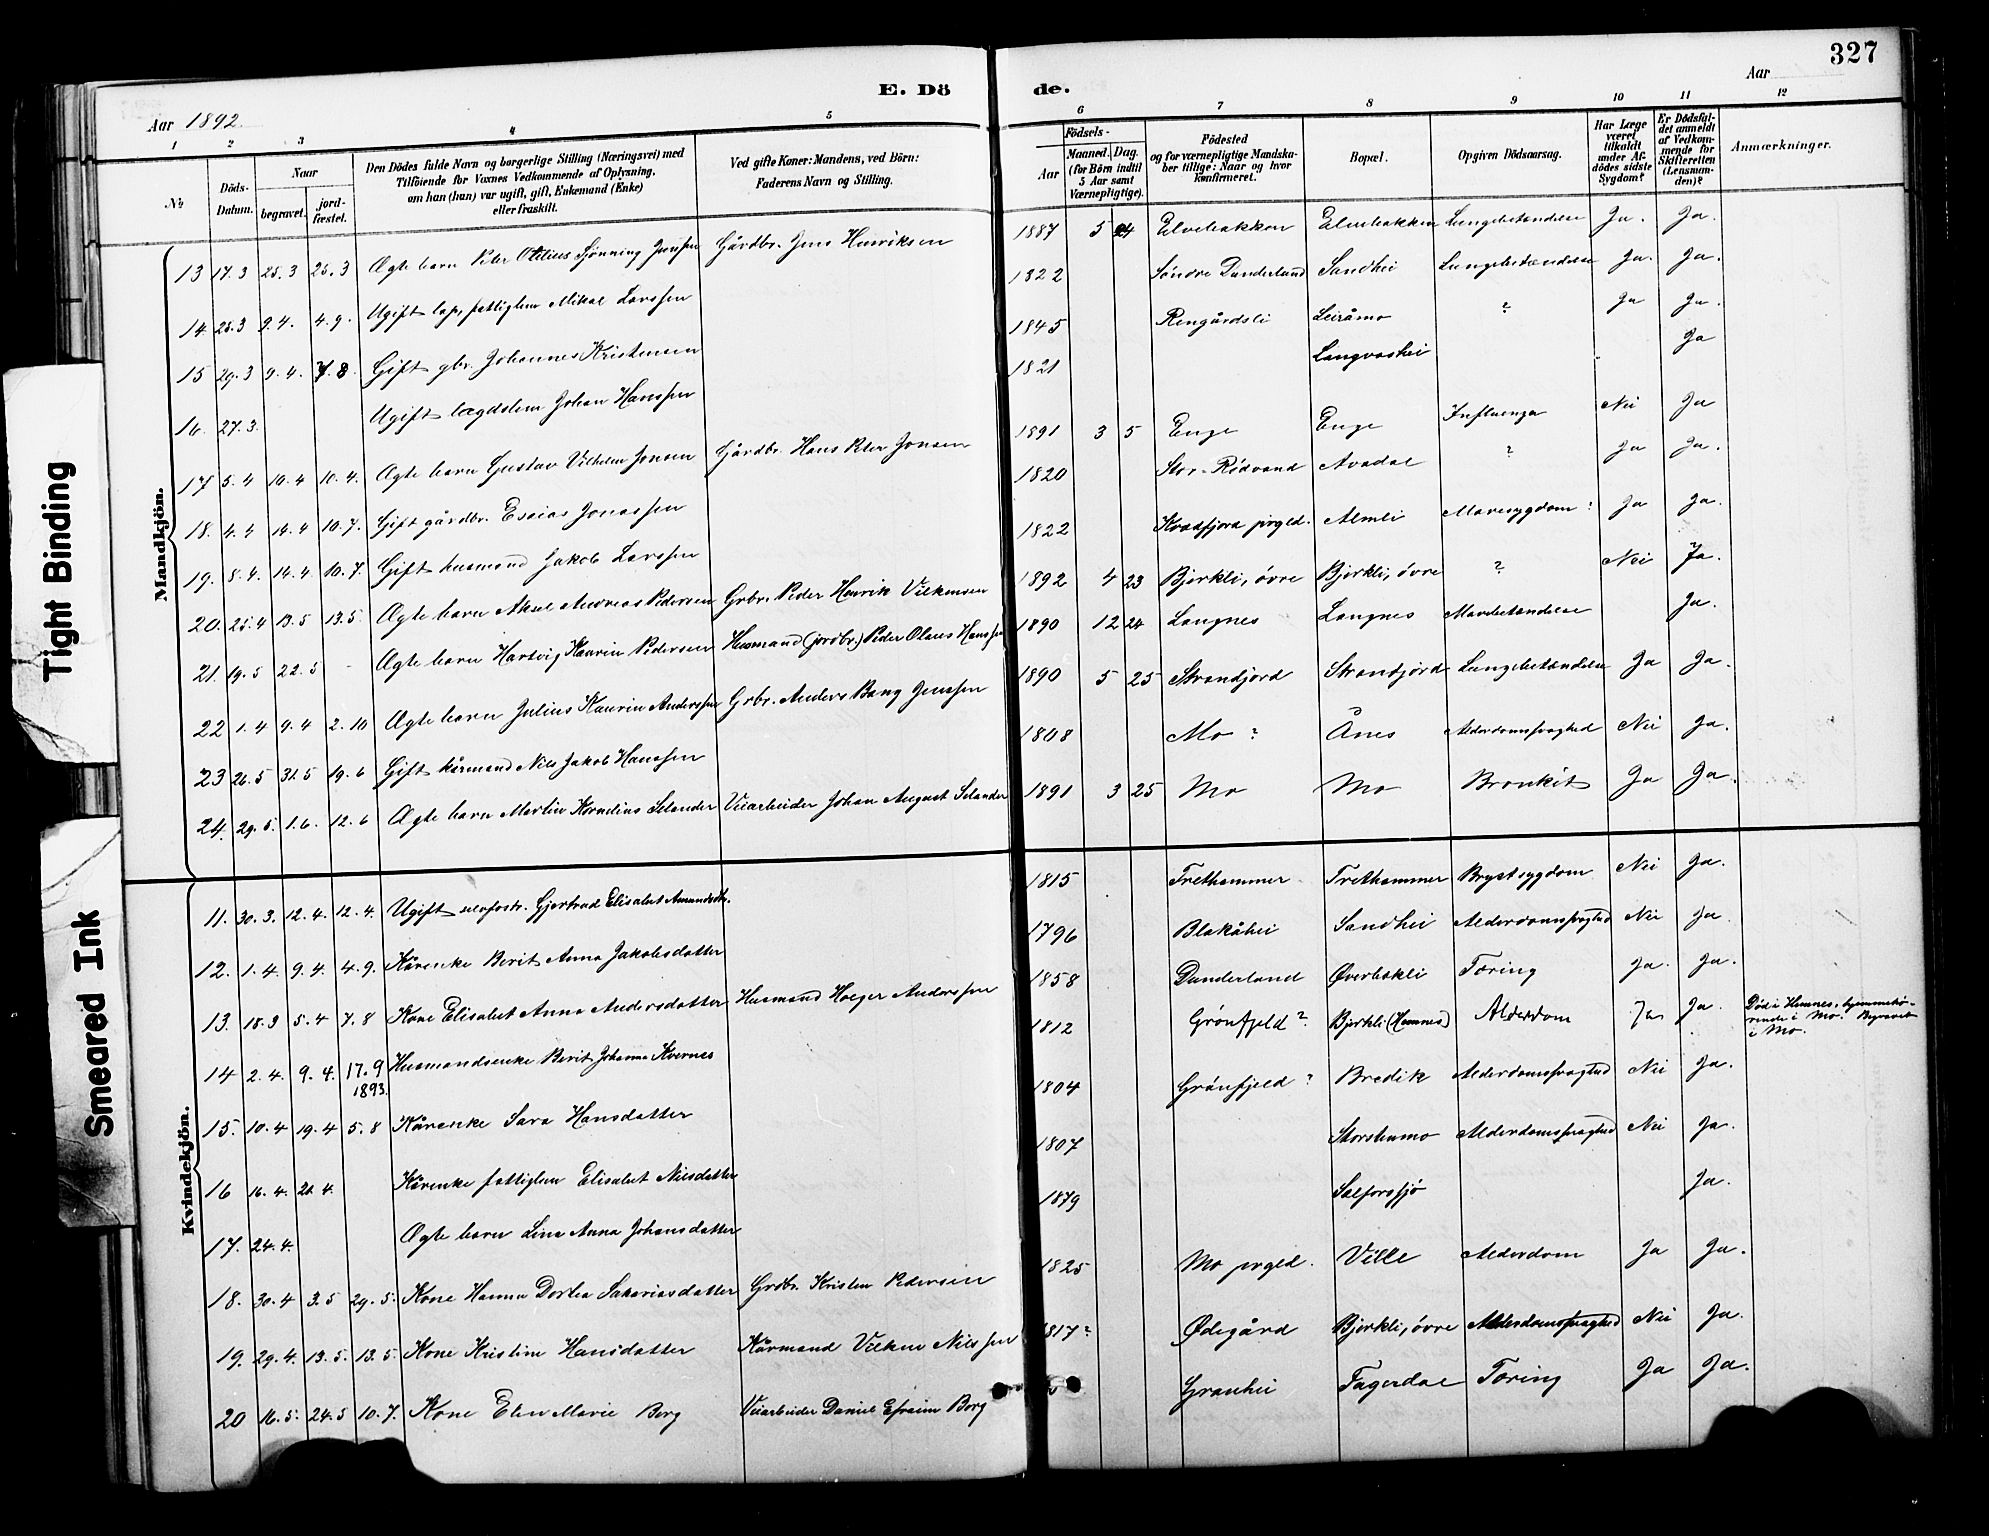 327
E. Dö
de.
Aar 1892.
Aar
1 2 3 4 5
6 7 8 9 10 11 12
No
Döds-Datum.
Naar
begravet.
jord-fæstet.
Den Dödes fulde Navn og borgerlige Stilling (Næringsvei) med
Tilföiende for Voxnes Vedkommende af Oplysning,
om han (hun) var ugift, gift, Enkemand (Enke)
eller fraskilt.
Ved gifte Koner: Mandens, ved Börn:
Faderens Navn og Stilling.
Födsels-
Aar
Maaned. Dag.
(for Börn indtil
5 Aar samt
Værnepligtige).
Födested
og for værnepligtige Mandska-
ber tillige: Naar og hvor
konfirmeret.
Bopæl.
Opgiven Dödsaarsag.
Har Læge
været
tilkaldt
under Af-
dödes sidste
Sygdom?
Er Dödsfal-
det anmeldt
af Vedkom-
mende for
Skifteretten
(Lensman-
den)?
Anmærkninger.
Mandkjön.
13 17.3 25.3 25.3 Ægte barn Peter Otelius Sjönning Jenssen Gårdbr. Jens Henriksen 1887 5 Elvebakken Elvebakken Lungebetændelse Ja. Ja.
14. 25.3 9.4. 4.9. Ugift lap, fattiglem Mikal Larssen 1822 Söndre Dunderland Sandhei Lungebetændelse Ja. Ja.
15 29.3 9.4. 7.8. Gift gbr. Johannes Kristensen 1845 Rengårdsli Leiråmo ? Ja Ja.
16. 27.3. Ugift lægdslem Johan Hanssen 1821 Langvashei Ja
17 5.4 10.4 10.4. Ægte barn Gustav Vilhelm Jonsen Gårdbr. Hans Peter Jonsen 1891 3 5 Enge Enge Influenza Nei Ja
18. 4.4 14.4 10.7. Gift gårdbr. Esaias Jonassen 1820 Stor-Rödvand Avadal ? Ja Ja.
19. 8.4. 14.4. 10.7. Gift husmand Jakob Larssen 1822 Kvædfjord prgld. Almli Mavesygdom? Ja Ja.
20. 25.4 13.5 13.5. Ægte barn Aksel Andreas Pedersen Grbr. Peder Henrik Vilkensen 1892 4 23 Bjerkli, övre Bjerkli, övre ? Nei Ja.
21. 19.5 22.5 - Ægte barn Hartvig Kaurin Pedersen Husmand (jordbr.) Peder Olaus Hanssen 1890 12 24 Langnes Langnes Mavebetændelse Ja.
22 1.4 9.4 2.10 Ægte barn Julius Kaurin Anderssen Grbr. Anders Bang Jenssen 1890 5 25 Strandjord Strandjord Lungebetændelse Ja Ja.
23 26.5 31.5 19.6 Gift kårmand Nils Jakob Hanssen 1808 Mo ? Ånes Alderdomssvaghed Nei Ja.
24. 29.5. 1.6. 12.6 Ægte barn Martin Kornelius Selander Veiarbeider Johan August Selander 1891 3 25 Mo Mo Bronkit Ja Ja.
Kvindekjön.
11. 30.3. 12.4. 12.4. Ugift Gjertrud Elisabet Amundsdtr. 1815 Trethammer Trethammer Brystsygdom Nei Ja.
12. 1.4. 9.4. 4.9. Kårenke Berit Anna Jakobsdatter 1796 Blakåhei Sandhei Alderdomssvaghed Nei Ja.
13. 18.3 5.4 7.8 Kone Elisabet Anna Andersdatter Husmand Holger Anderssen 1858 Dunderland Øverbakli Tæring Ja. Ja.
14 2.4. 9.4. 17.9 1893. Husmandsenke Berit Johanna Kvernes 1812 Grönfjeld ? Bjerkli (Hemnes) Alderdom Ja Ja. Död i Hemnes, hjemmehö-
rende i Mo. Begravet
i Mo.
15. 10.4 19.4 5.8 Kårenke Sara Hansdatter 1804 Grönfjeld ? Bredik Alderdomssvaghed Nei Ja.
16 16.4. 21.4. Kårenke fattiglem Elisabet Nilsdatter 1807 Storshumo Alderdomssvaghed Nei Ja.
17. 24.4. Ægte barn Lina Anna Johansdatter 1879 Salforssjö Ja.
18. 30.4 3.5 29.5. Kone Hanna Dortea Sakariasdatter Grdbr. Kristen Pedersen 1825 Mo prgld. Ville Alderdom Ja Ja.
19. 29.4. 13.5. 13.5. Kone Kristine Hansdatter Kårmand Vilken Nilssen 1817? Ødegård Bjerkli, övre Alderdomssvaghed Nei Ja.
20 16.5. 24.5 10.7. Kone Elen Marie Berg Veiarbeider Daniel Efraim Berg Granhei Fagerdal Tæring Ja Ja.
Tight Binding
Smeared Ink